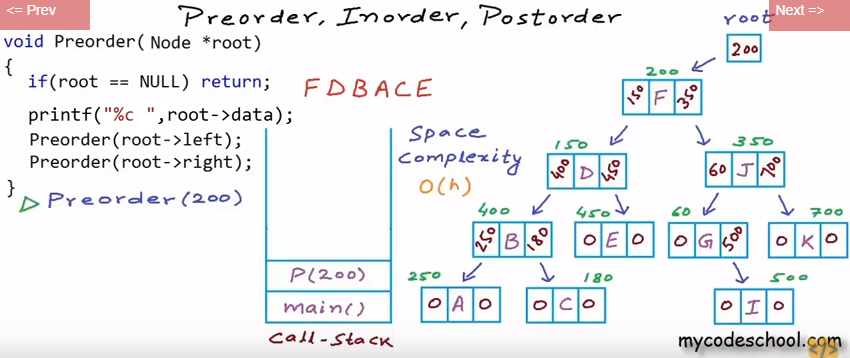 <= Prev
Next =>
Preorder, Inorder, Postorder
void Preorder(Node *root)
{
if(root == NULL) return;
printf("%c ",root->data);
Preorder(root->left);
Preorder(root->right);
}
Preorder(200)
F D B A C E
Space
Complexity
O(h)
P(200)
main()
Call-Stack
root
200
200
150 F 350
150
400 D 450
350
60 J 700
400
250 B 180
450
0 E 0
60
0 G 500
700
0 K 0
250
0 A 0
180
0 C 0
500
0 I 0
mycodeschool.com
</>